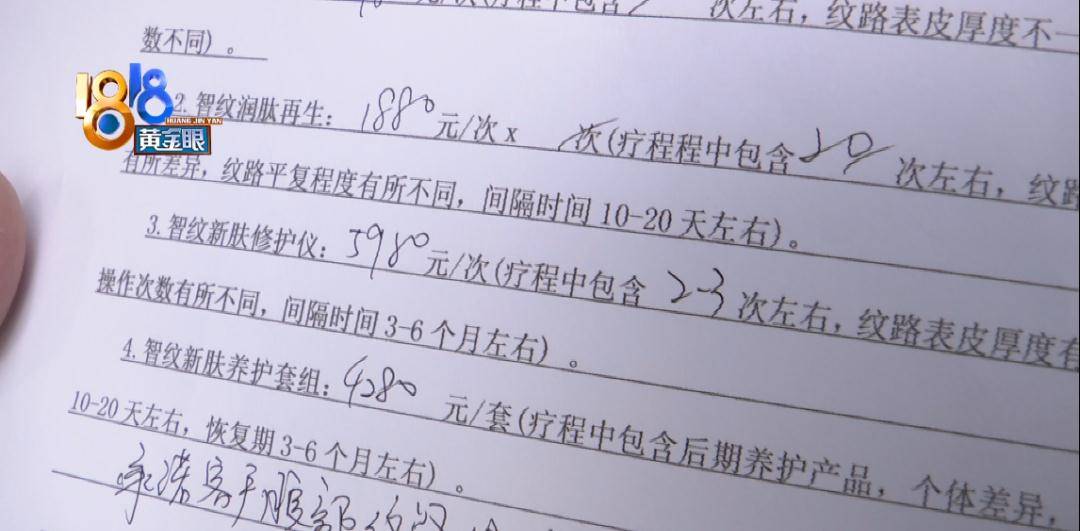 元/次(疗程中包含 次左右，纹路表皮厚度不一
数不同)。
1818
HUANG JIN YAN
黄金眼
2.智纹润肽再生：1880元/次x 次(疗程程中包含20次左右，纹路
有所差异，纹路平复程度有所不同，间隔时间10-20天左右)。
3.智纹新肤修护仪：5980元/次(疗程中包含 2-3次左右，纹路表皮厚度有
操作次数有所不同，间隔时间3-6个月左右)。
4.智纹新肤养护套组：4280 元/套(疗程中包含后期养护产品，个体差异，
10-20天左右，恢复期3-6个月左右)。
承诺客户腹部